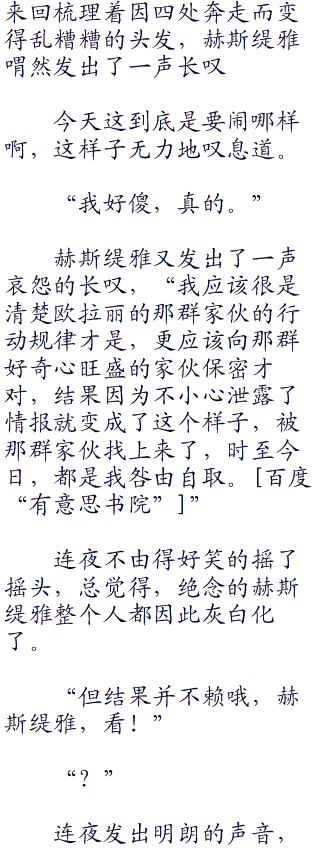 来回梳理着因四处奔走而变
得乱糟糟的头发，赫斯缇雅
喟然发出了一声长叹
今天这到底是要闹哪样
啊，这样子无力地叹息道。
“我好傻，真的。”
赫斯缇雅又发出了一声
哀怨的长叹，“我应该很是
清楚欧拉丽的那群家伙的行
动规律才是，更应该向那群
好奇心旺盛的家伙保密才
对，结果因为不小心泄露了
情报就变成了这个样子，被
那群家伙找上来了，时至今
日，都是我咎由自取。[百度
“有意思书院”]”
连夜不由得好笑的摇了
摇头，总觉得，绝念的赫斯
缇雅整个人都因此灰白化
了。
“但结果并不赖哦，赫
斯缇雅，看！”
“？”
连夜发出明朗的声音，